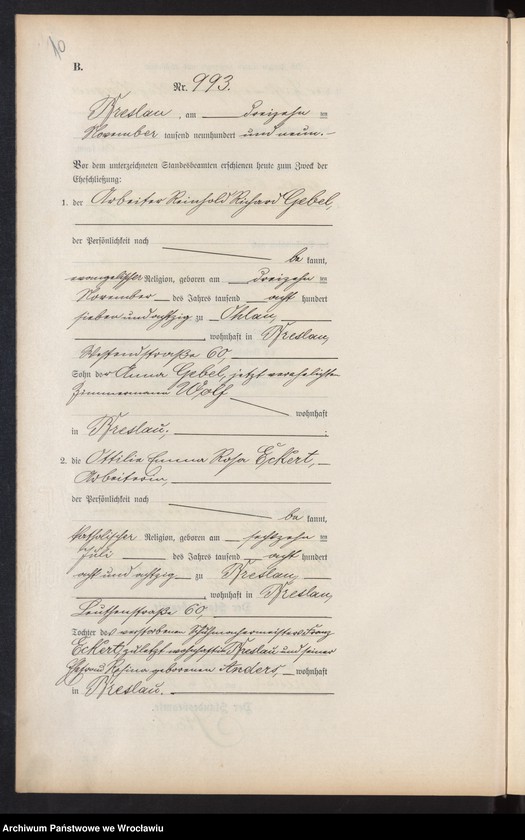 10
B.
Nr. 993.
Breslau, am dreizehn ten
November tausend neunhundert und neun.
Vor dem unterzeichneten Standesbeamten erschienen heute zum Zweck der
Eheschließung:
1. der Arbeiter Reinhold Richard Gebel,
der Persönlichkeit nach
be kannt,
evangelischer Religion, geboren am dreizehn ten
November des Jahres tausend acht hundert
sieben und achtzig zu Ohlau,
, wohnhaft in Breslau,
Westendstraße 60
Sohn der Anna Gebel, jetzt verehelichte
Zimmermann Wolf
wohnhaft
in Breslau, ;
2. die Ottilie Emma Rosa Eckert,
Arbeiterin,
der Persönlichkeit nach
be kannt,
katholischer Religion, geboren am sechzehn ten
Juli des Jahres tausend acht hundert
acht und achtzig zu Breslau,
, wohnhaft in Breslau,
Leuthenstraße 60,
Tochter des verstorbenen Schuhmachermeisters Franz
Eckert, zuletzt wohnhaft in Breslau und seiner
Ehefrau Rosina geborenen Anders, wohnhaft
in Breslau.
Archiwum Państwowe we Wrocławiu